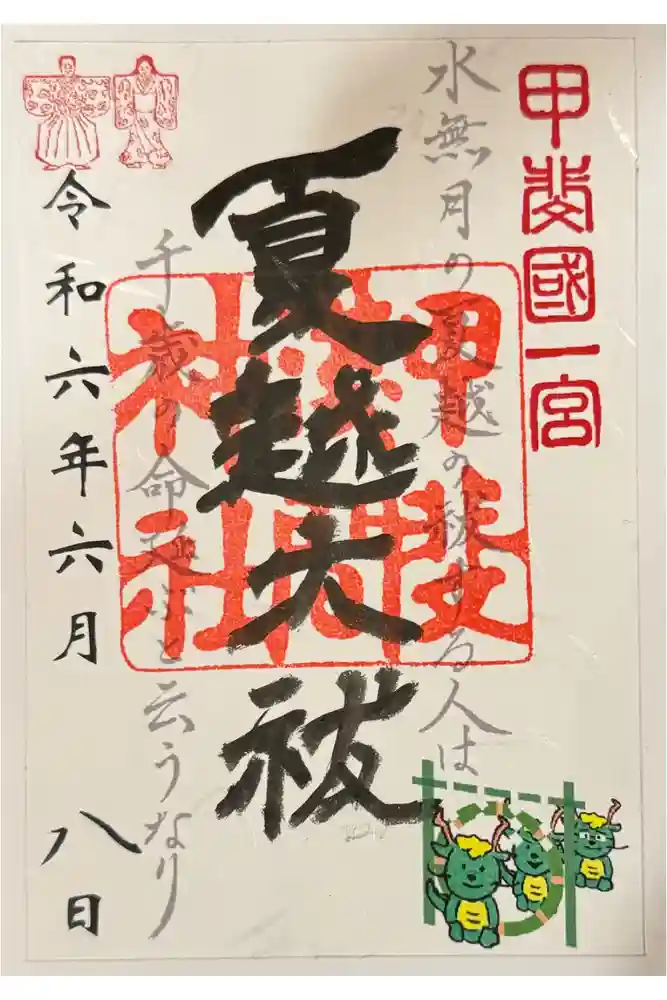 甲斐國一宮
水無月の夏越の祓する人は
夏越大祓
甲斐
間
神社
千歳の命延ぶと云うなり
令和六年六月八日